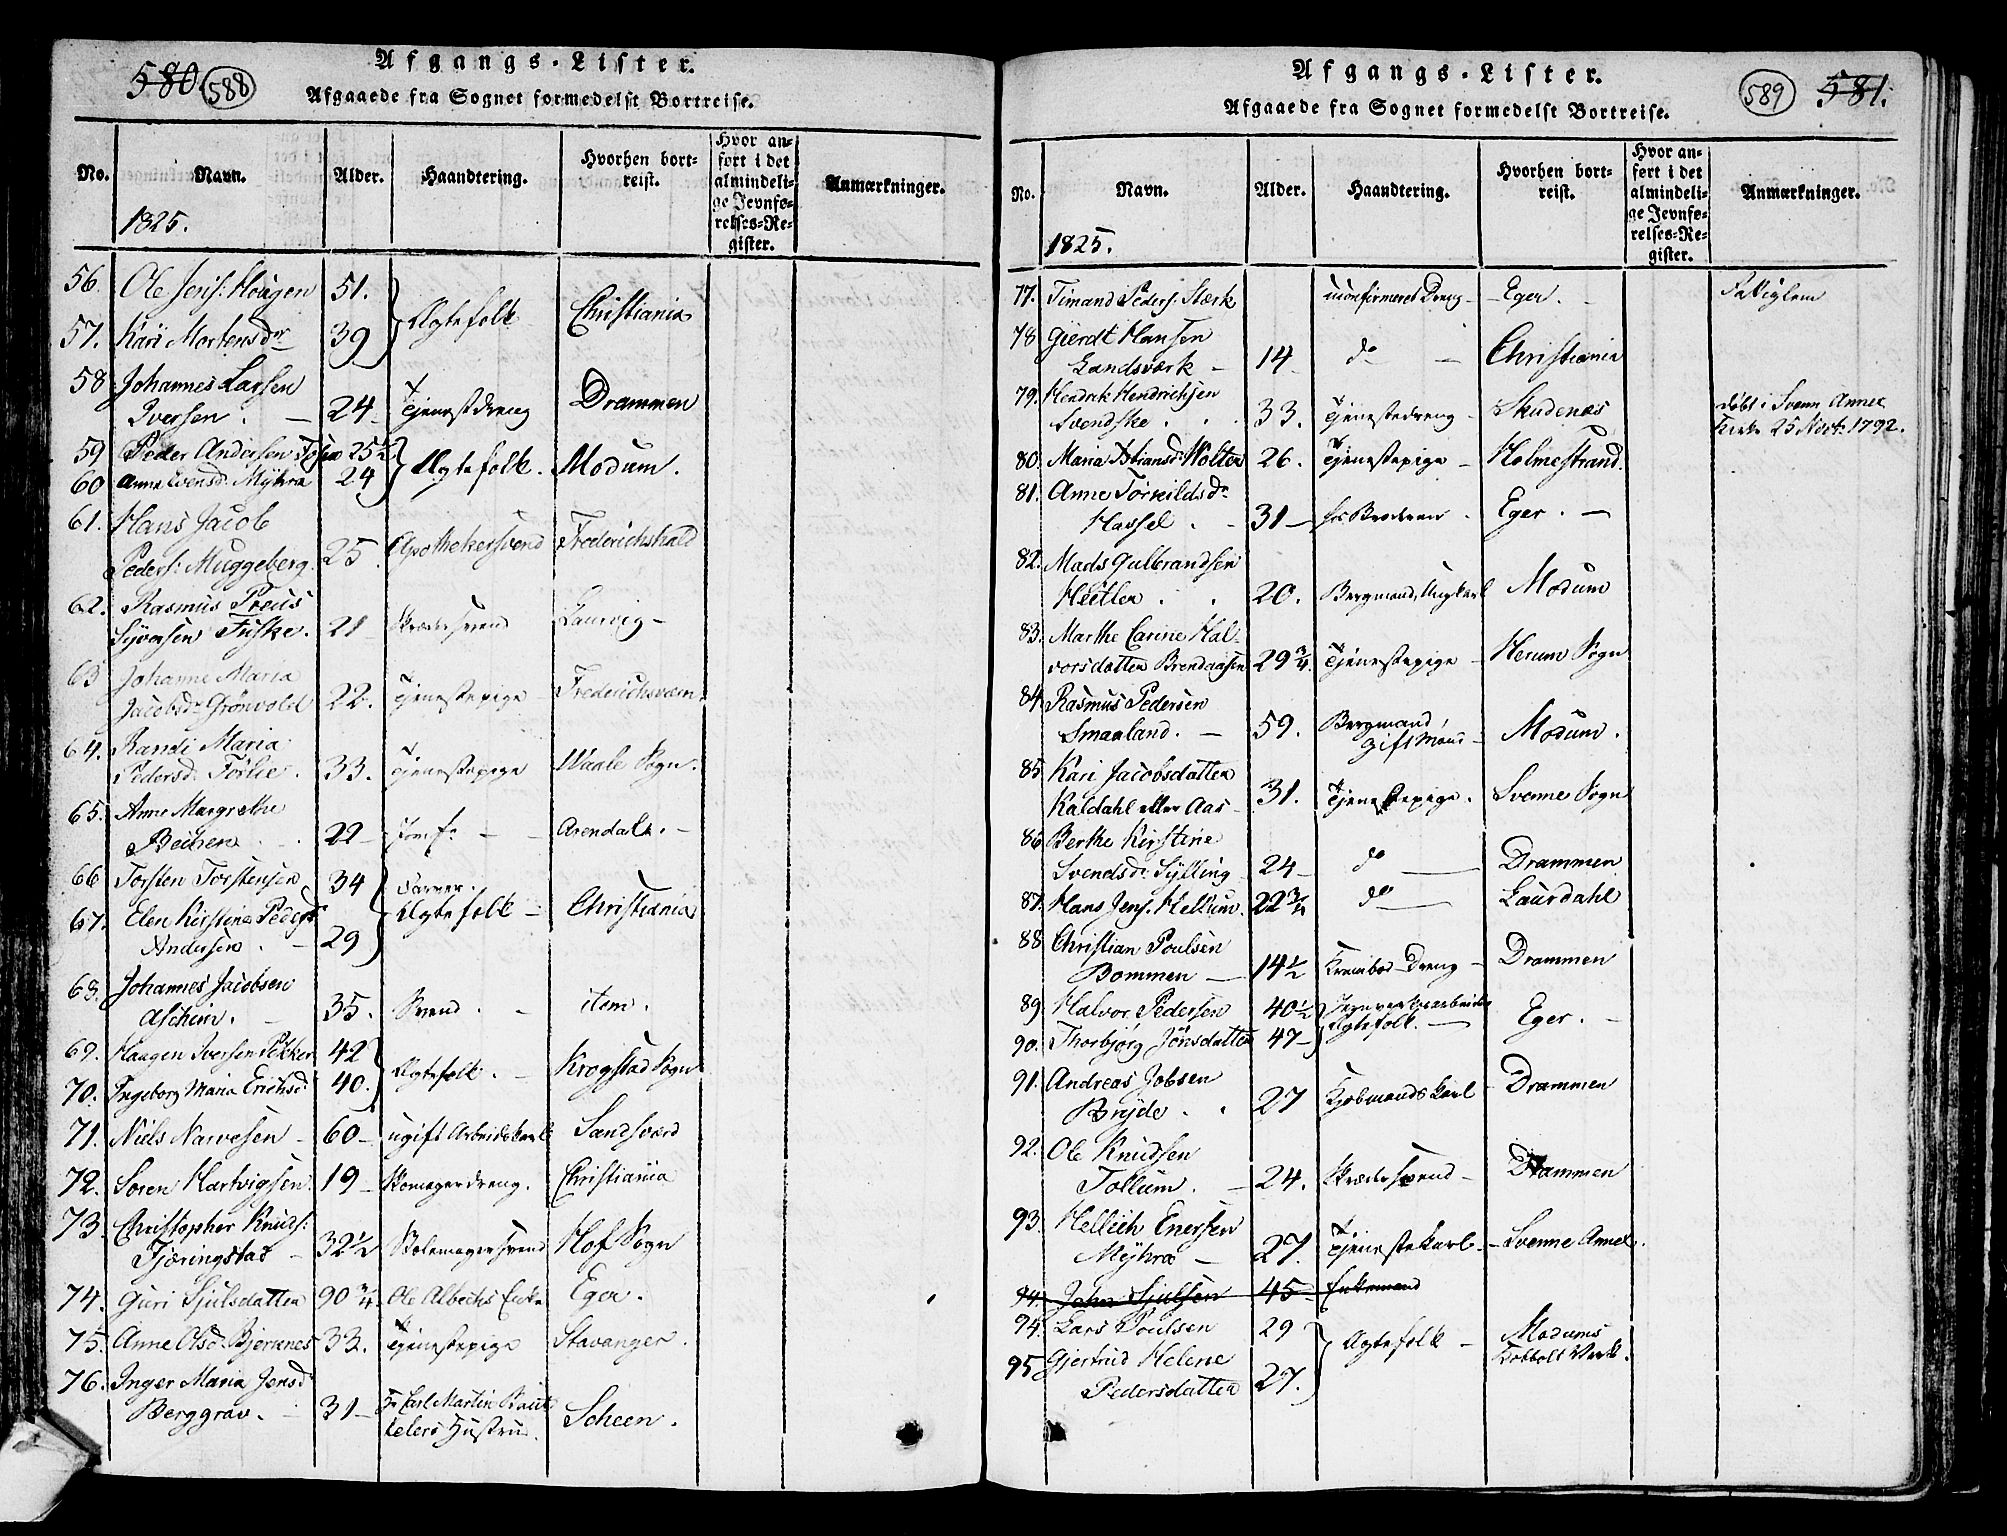 580 588
Afgangs-Lister.
Afgaaede fra Sognet formedelst Bortreise.
No. Navn. Alder. Haandtering. Hvorhen bortreist. Hvor anført i det almindelige Jevnførelses-Register. Anmærkninger.
1825.
56. Ole Jens: Hougen 51. Ægtefolk Christiania
57. Kari Mortensdr 39
58 Johannes Larsen
Iversen. 24 Tjenestdreng Drammen
59 Peder Andersen 25½ Ægtefolk. Modum.
60 Anne Evensd: Myhra 24
61. Hans Jacob
Peders: Muggeberg. 25. Apothekersvend Frederichshald
62. Rasmus Preus
Syversen Fuske. 21 Skrædersvend Laurvig
63 Johanne Maria
Jacobsdr Grönvold 22. Tjenestepige Frederichsværn
64. Randi Maria
Pedersd: Forlie. 33. Tjenestepige Waale Sogn.
65. Anne Margrethe
22 Jomfr Arendal.
66 Torsten Torstensen 34 Farver. Ægtefolk Christiania
67. Elen Kirstine Pedersd
Andersen. 29
68. Johannes Jacobsen
Aschim. 35. Svend. item.
69. Haagen Iversen Pekker 42 Ægtefolk. Krogstad Sogn
70. Ingeborg Maria Erichsd: 40.
71. Niels Narvesen 60 ugift Arbeidskarl Sandsværd
72. Soren Hartvigsen 19 Skomagerdreng. Christiania
73. Christopher Knuds:
Fjæringstad 32½ Stolemagersvend Hof Sogn
74. Guri Sjulsdatter 90¾ Ole Albechs Enke Eger.
75. Anne Olsd: Bjerknes 33. Tjenestepige Stavanger.
76. Inger Maria Jensd:
Berggrav. 31 Carl Martin
Hustrue. Scheen.
589 581.
Afgangs-Lister.
Afgaaede fra Sognet formedelst Bortreise.
No. Navn. Alder. Haandtering. Hvorhen bortreist. Hvor anført i det almindelige Jevnførelses-Register. Anmærkninger.
1825.
77. Timand Peders: Stærk uconfirmeret Dreng Eger. Fattiglem
78 Gierdt Hansen
Landsværk 14 do Christiania
79. Hendrik Hendrichsen
Svendske. 33. Tjenestedreng Skudenæs døbt i Svenn Annex
Kirke 25 Mart. 1792.
80. Maria Wolter 26. Tjenestepige Holmestrand.
81. Anne Torkildsdr
Hassel. 31 Eger.
82. Mads Gulbrandsen
20. Bergmand, Ungkarl Modum
83. Marthe Carine Hal-
vorsdatter Brendaasen 29¾ Tjenestepige Herum Sogn
84. Rasmus Pedersen
Smaaland. 59. Bergmand, Gift Mand Modum.
85 Kari Jacobsdatter
Kaldahl eller Aas 31. Tjenestepige. Svenne Sogn
86 Berthe Kirstine
Svendsdr Sylling 24 do Drammen
87. Hans Jens. Hellum. 22¾ do Laurdahl
88 Christian Poulsen
Bommen 14½ Krambod-Dreng Drammen
89. Halvor Pedersen 40½ Ægtefolk. Eger.
90. Thorbjørg Jönsdatter 47
91. Andreas Jobsen
Bryde. 27 Kjøbmandskarl Drammen
92. Ole Knudsen
Tollum. 24. Skrædersvend Drammen
93. Hellich Enersen
Myhra 27. Tjenestekarl. Svenne Annex.
94. John Sjulsen 45 Enkemand
94. Lars Poulsen 29 Ægtefolk Modums
95. Gjertrud Helene Kobbolt Værk.
Pedersdatter 27.